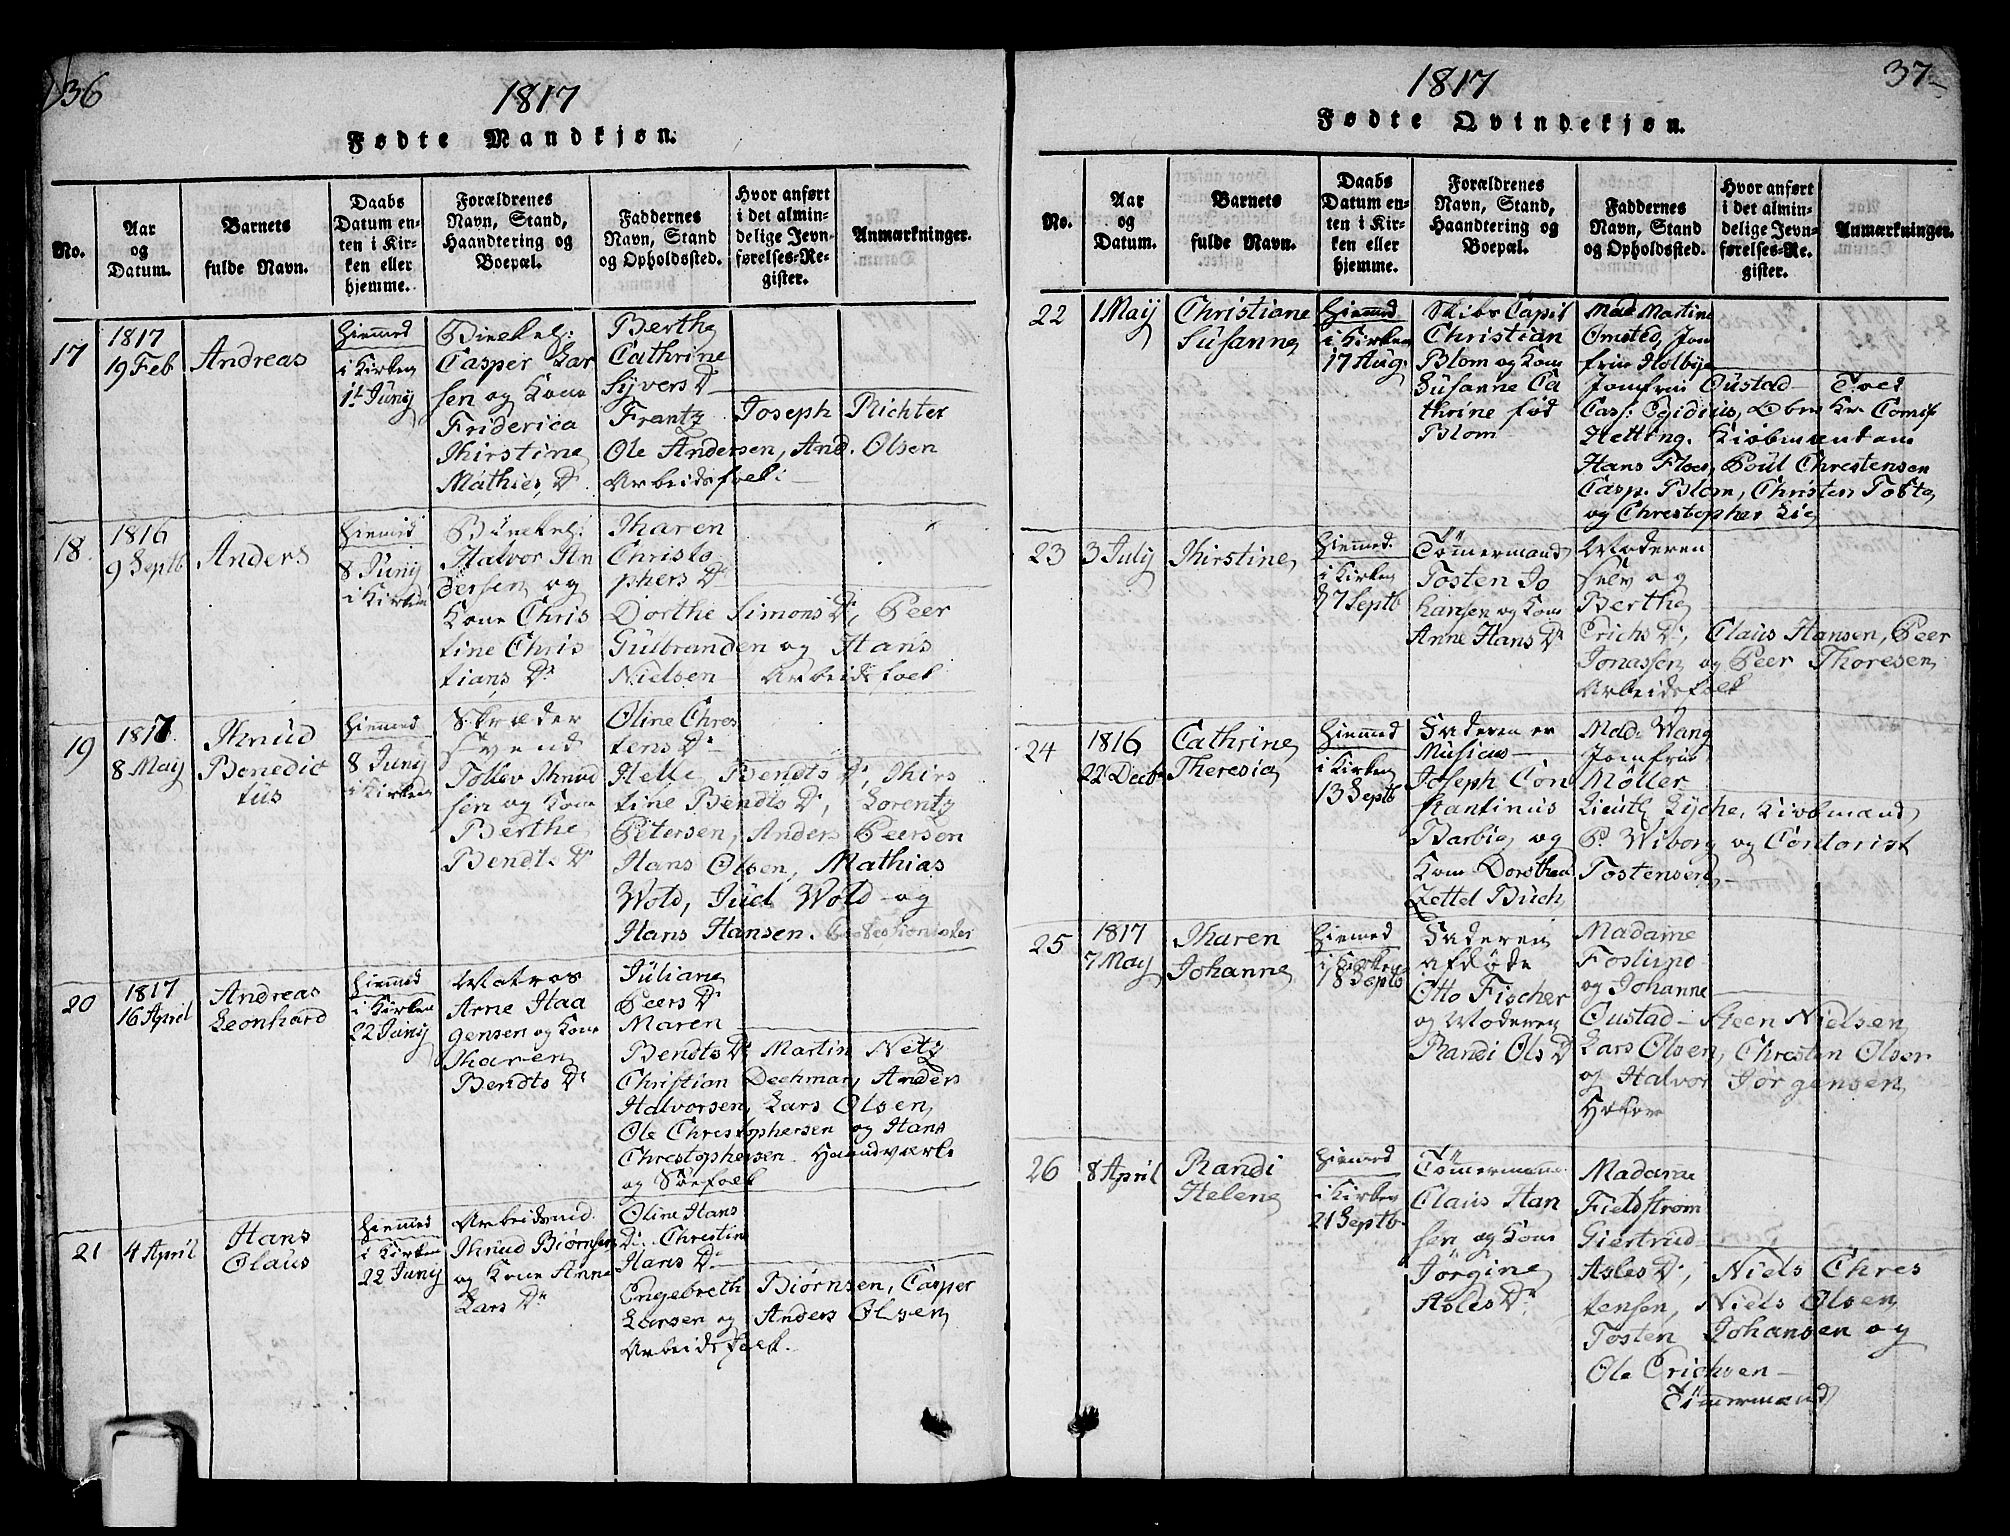 36
1817
Fødte Mandkjøn.
No.
Aar
og
Datum.
Barnets
fulde Navn.
Daabs
Datum en-
ten i Kir-
ken eller
hjemme.
Forældrenes
Navn, Stand,
Haandtering og
Boepæl.
Faddernes
Navn, Stand
og Opholdssted.
Hvor anført
i det almin-
delige Jevn-
førelses-Re-
gister.
Anmærkninger.
17
1817
19 Feb
Andreas
Hiemmed
i Kirken
1t Junÿ
Casper Lar
sen og Kone
Friderica
Kirstine
Mathies D.
Berthe
Cathrine
Syvers D.
Frantz Joseph Richter
Ole Andersen, And. Olsen
Arbeidsfolk:
18.
1816
9 Septb
Anders
Hiemmed
8 Junÿ
i Kirken
Halvor An
dersen og
Kone Chris
tine Chris
tians D.
Karen
Christo
phers D
Dorthe Simons D., Peer
Gulbranden og Hans
Nielsen Arbeidsfolk
19
1817.
8 Maÿ
Knud
Benedic
tus
Hiemmed
8 Junÿ
i Kirken
Skræder
Svend
Tollev Knud
sen og Kone
Berthe
Bendts D
Oline Chres
tens D.
Helle Bendts D., Kirs
tine Bendts D., Lorentz
Petersen, Anders Peersen
Hans Olsen, Mathias
Wold, Juel Wold og
Hans Hansen.
20
1817
16 April
Andreas
Leonhard
Hiemmed
i Kirken
22 Junÿ
Matros
Arne Haa
gensen og Kone
Karen
Bendts D.
Juliane
Peers D.
Maren
Bendts D. Martin Netz
Christian Dechman, Anders
Halvorsen, Lars Olsen,
Ole Christophersen og Hans
Chrestophersen. Haandværks
og Søefolk
21
4 April
Hans
Olaus
Hiemmed
i Kirken
22 Junÿ
Arbeidsmd.
Knud Biørnsen
og Kone Anne
Lars D.
Oline Hans
D. Christin
Hans D.
Engebreth Biørnsen, Casper
Larsen og Anders Olsen
Arbeidsfolk.
37
1817
Fødte Qvindekjøn.
No.
Aar
og
Datum.
Barnets
fulde Navn.
Daabs
Datum en-
ten i Kir-
ken eller
hjemme.
Forældrenes
Navn, Stand,
Haandtering og
Boepæl.
Faddernes
Navn, Stand
og Opholdssted.
Hvor anført
i det almin-
delige Jevn-
førelses-Re-
gister.
Anmærkninger.
22
1 Maÿ
Christiane
Susanne
Hiemmed
i Kirken
17 Aug.
Skibs Capit
Christian
Blom og Kone
Susanne Ca
thrine fød
Blom
Mad. Martine
Omsted, Jom
fru Holbÿe
Jomfru Oustad
Hetting. Kiøbmændene
Hans Floer, Poul Chrestensen
Casp. Blom, Christen Toste
og Chrestopher Lie
23
3 July
Kirstine
Hiemmed.
i Kirken
7 Septb
Tømmermand
Tosten Jo
hansen og Kone
Anne Hans D.
Moderen
selv og
Berthe
Erichs D., Claus Hansen, Peer
Jonassen og Peer Thoresen
Arbeidsfolk
24
1816
22 Decbr
Cathrine
Theresia
Hiemmed
i Kirken
13 Septb
Faderen er
Musicus
Joseph Con
stantinus
Barbie og
Kone Dorothea
Zettel Buch
Mad. Wang
Jomfru
Møller
Lieutl. Lÿche, Kiøbmænd
P. Wiborg og Contorist
Tostensen
25
1817
7 Maÿ
Karen
Johanne
Hiemmed
i Kirken
18 Septb
Faderen
afdøde
Otto Fischer
og Moderen
Randi Ols D
Madame
Foslund
og Johanne
Oustad Steen Nielsen
Lars Olsen, Chresten Olsen
og Halvor Jørgensen
26
8 April
Randi
Helene
Hiemmed
i Kirken
21 Septb
Tømmermand
Claus Han
sen og Kone
Jørgine
Asles D.
Madame
Fieldstrøm
Giertrud
Asles D., Niels Chres
tensen, Niels Olsen
Tosten Johansen og
Ole Erichsen
Tømmermænd